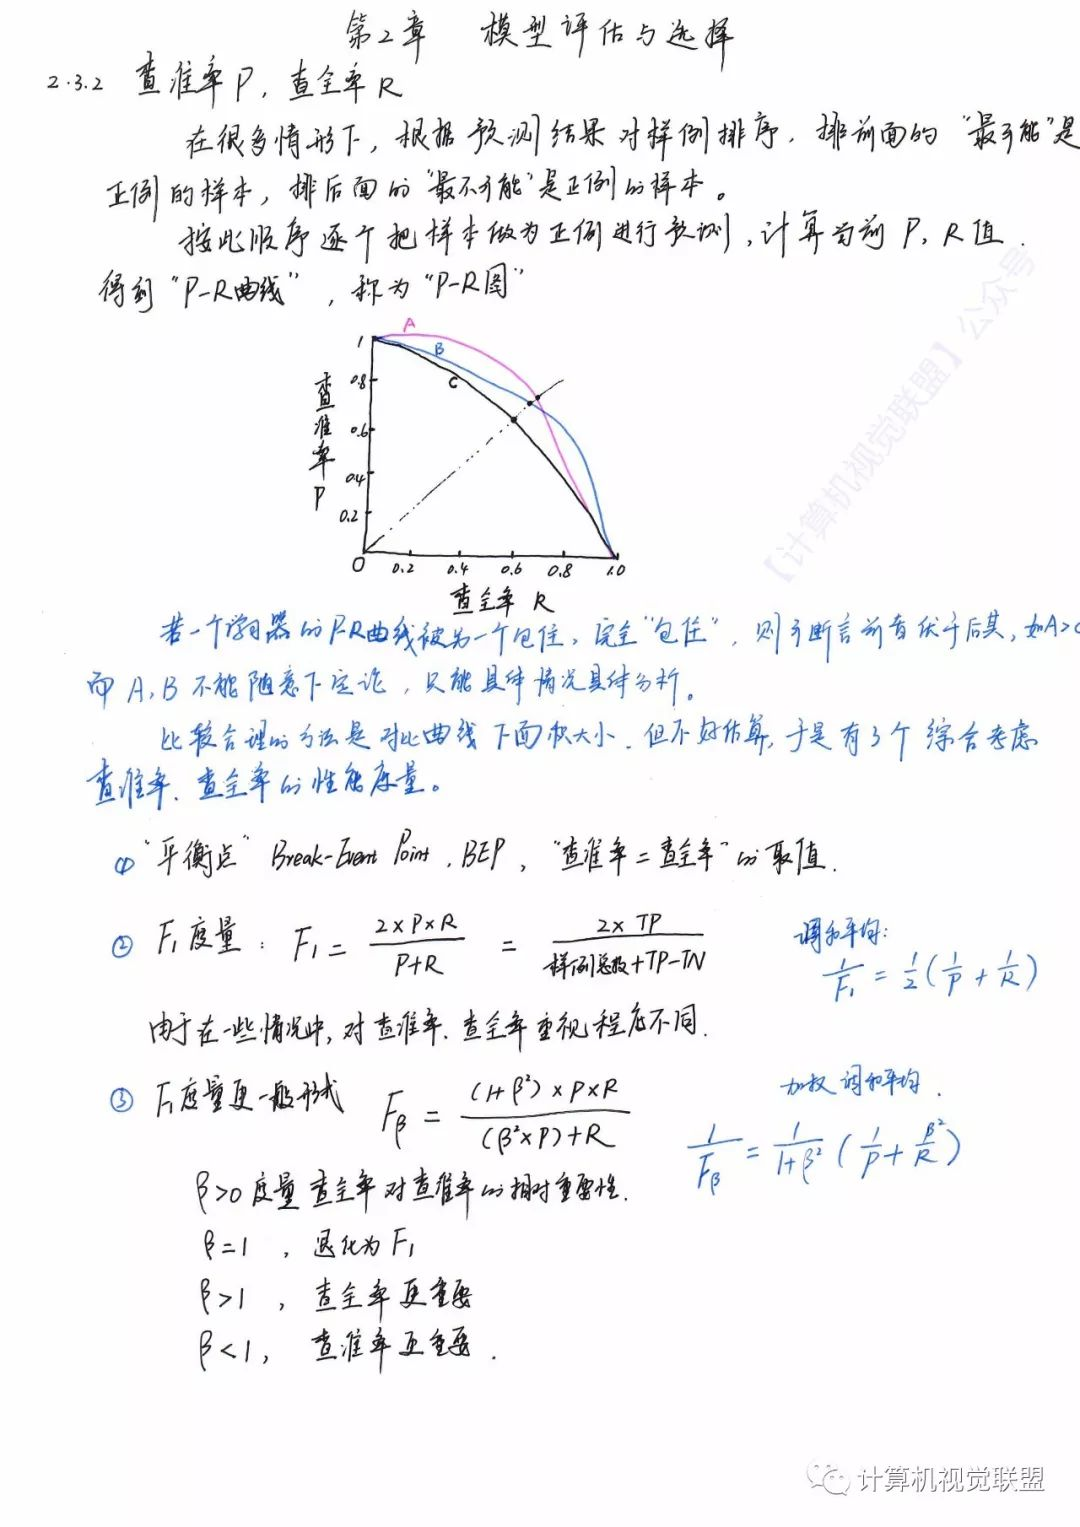 第2章 模型评估与选择
2.3.2 查准率P,查全率R
在很多情形下,根据预测结果对样例排序,排前面的“最可能”是
正例的样本,排后面的“最不可能”是正例的样本。
按此顺序逐个把样本做为正例进行预测,计算当前P,R值.
得到“P-R曲线”,称为“P-R图”
A
B
C
查准率P
1
0.8
0.6
0.4
0.2
0 0.2 0.4 0.6 0.8 1.0
查全率R
若一个学习器的P-R曲线被另一个包住,完全“包住”,则可断言前者优于后其,如A>C
而A,B不能随意下定论,只能具体情况具体分析。
比较合理的方法是对比曲线下面积大小.但不好估算,于是有3个综合考虑
查准率、查全率的性能度量。
① “平衡点” Break-Event Point, BEP, “查准率=查全率”的取值.
② F₁度量: F₁ = 2×P×R / P+R = 2×TP / 样例总数+TP-TN
调和平均:
1/F₁ = 1/2(1/P + 1/R)
由于在一些情况中,对查准率、查全率重视程度不同.
③ F₁度量更一般形式 Fβ = (1+β²)×P×R / (β²×P)+R
加权调和平均.
1/Fβ = 1/1+β² (1/P + β²/R)
β>0度量查全率对查准率的相对重要性.
β=1,退化为F₁
β>1,查全率更重要
β<1,查准率更重要.
【计算机视觉联盟】公众号
计算机视觉联盟